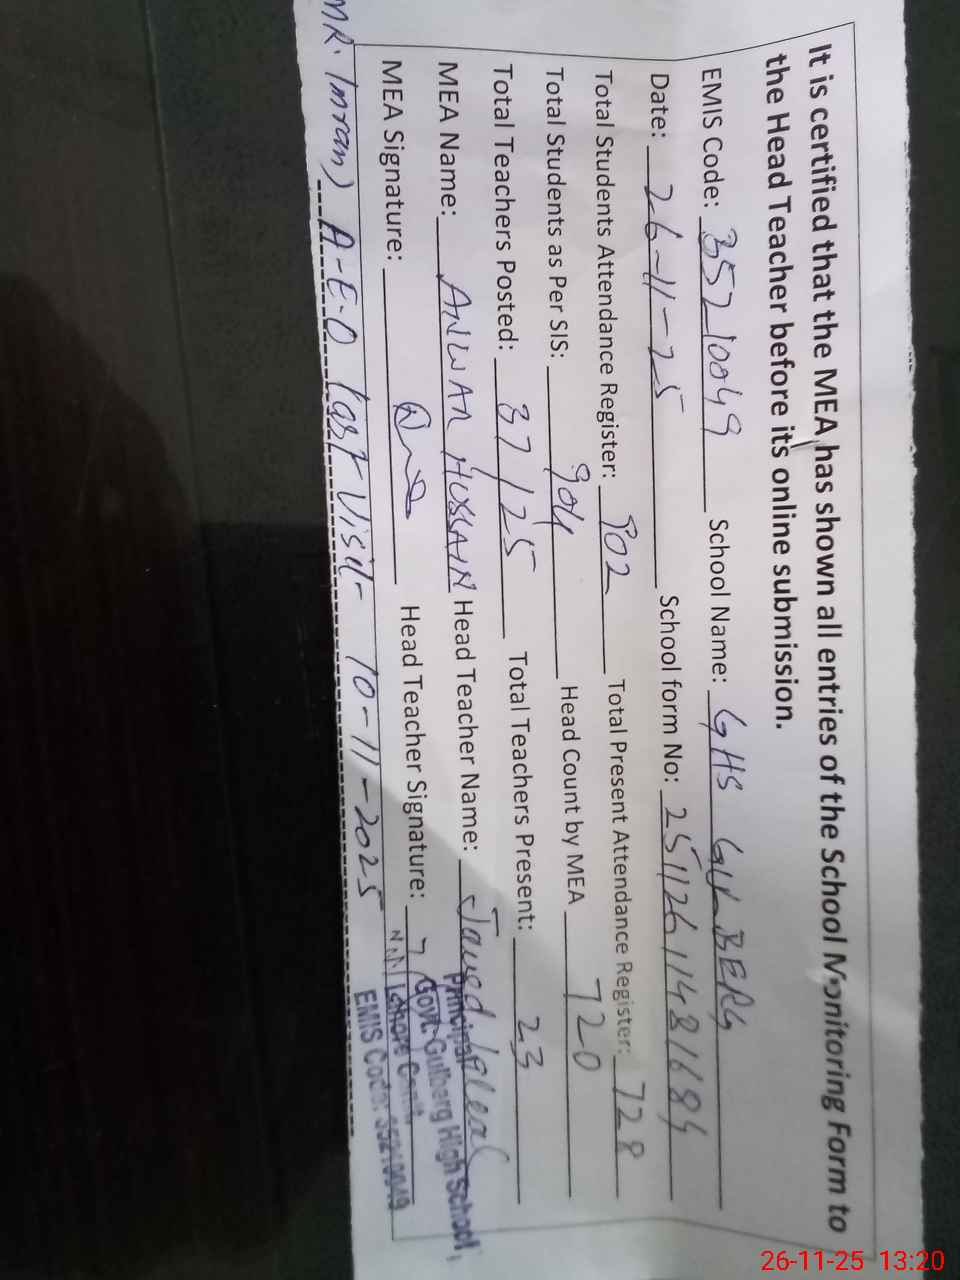 It is certified that the MEA has shown all entries of the School Monitoring Form to
the Head Teacher before its online submission.
EMIS Code: 35210049 School Name: GHS GULBERG
Date: 26-11-25 School form No: 2511261148168
Total Students Attendance Register: 902 Total Present Attendance Register: 728
Total Students as Per SIS: 904 Head Count by MEA 720
Total Teachers Posted: 37/25 Total Teachers Present: 23
MEA Name: ANWAR HUSSAIN Head Teacher Name: Javed
MEA Signature: Head Teacher Signature:
Principal
Govt. Gulberg High School,
Lahore Cantt
EMIS Code: 35210049
MR. Imran) A-E-O last visit 10-11-2025
26-11-25 13:20